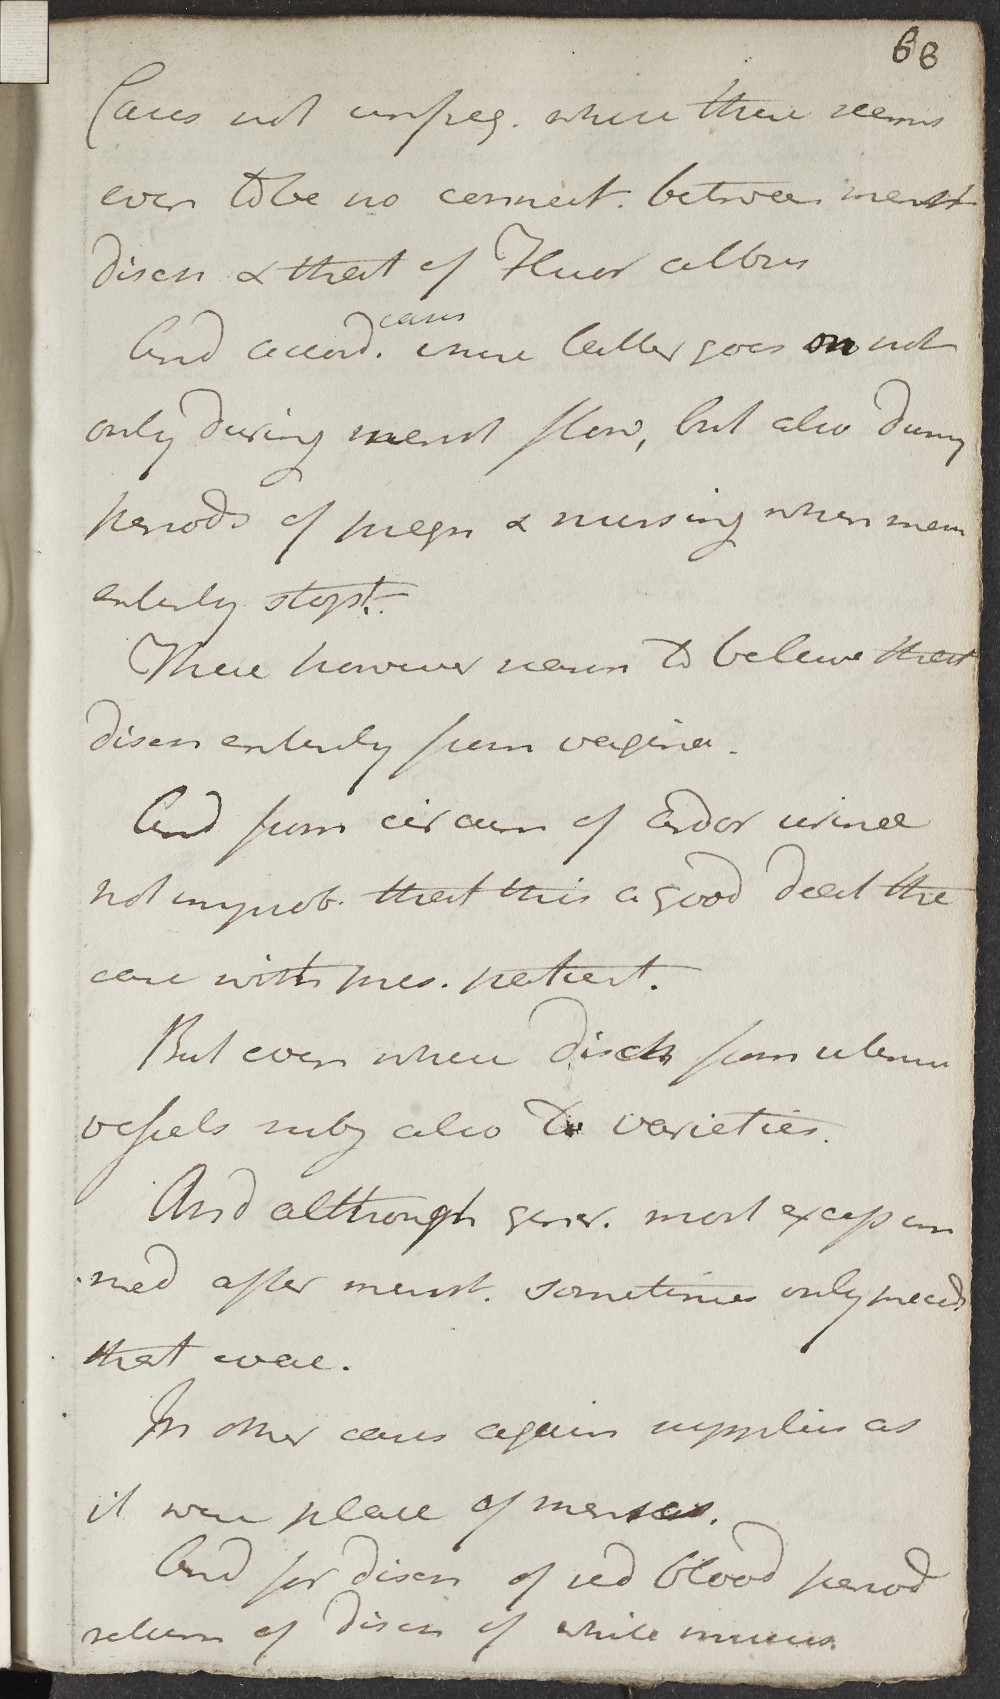 68
Cases not unfreq. where there seems
even to be no connect. between menst
disch & that of Fluor albus
And accord. cases where latter goes on not
only during menst flow, but also during
periods of pregn & nursing when men
entirely stopt.
There however reason to believe that
disch entirely from vagina.
And from circum of ardor urinae
not improb. that this a good deal the
case with pres. patient.
But even where disch from uterine
vessels subj also to varieties.
And although gener. most excess im
med after menst. sometimes only preceeds
that evac.
In other cases again supplies as
it were place of menses.
And for disch of red blood period
return of disch of white mucus.